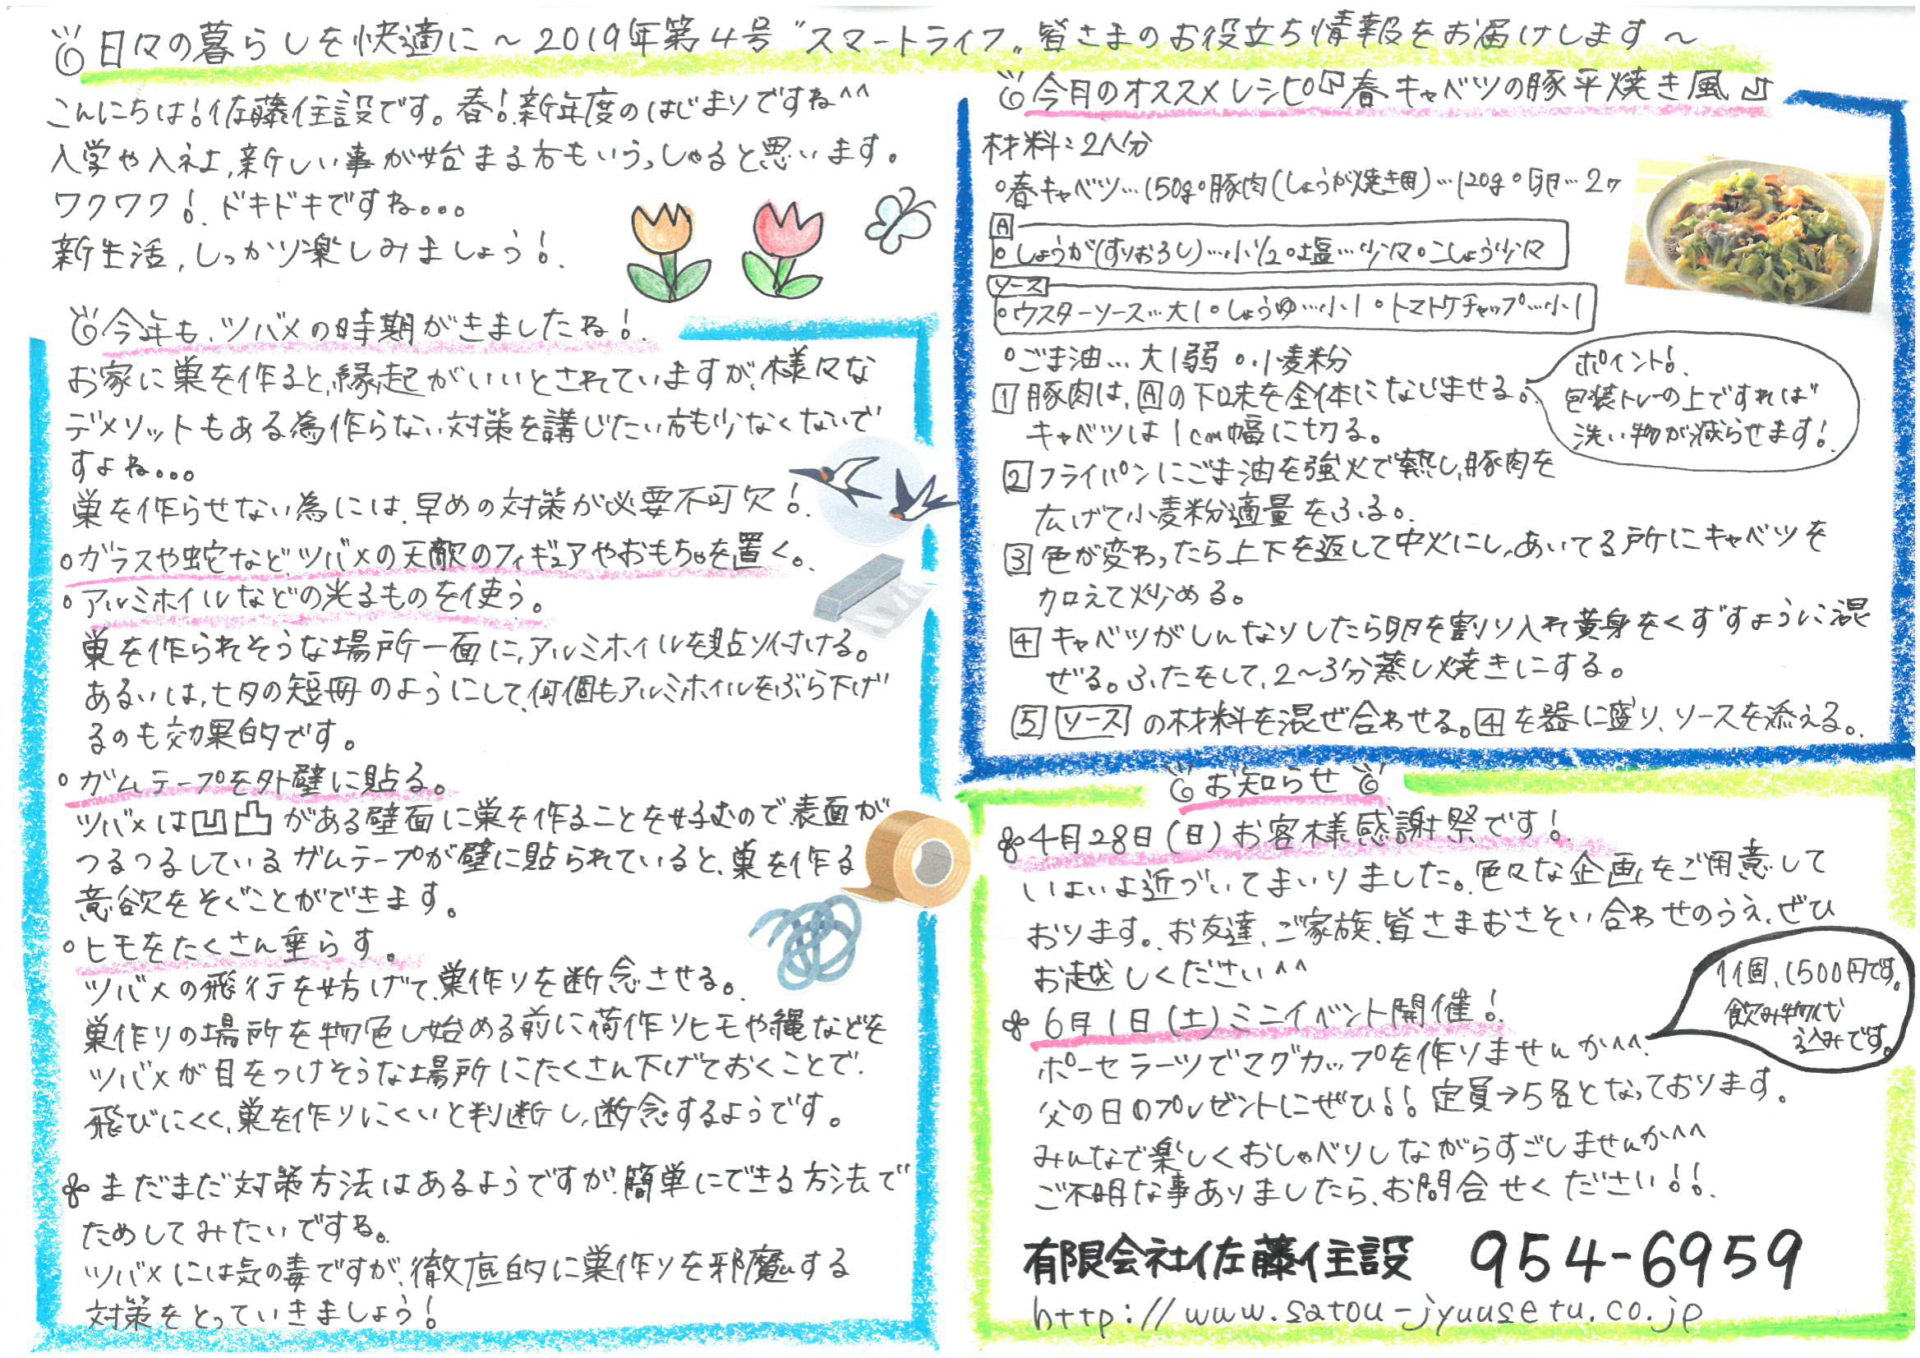 日々の暮らしを快適に～2019年第4号〝スマートライフ〟皆さまのお役立ち情報をお届けします～
こんにちは!佐藤住設です。春!新年度のはじまりですね^^
入学や入社、新しい事が始まる方もいらっしゃると思います。
ワクワク!ドキドキですね。。。
新生活、しっかり楽しみましょう!
今年も、ツバメの時期がきましたね!
お家に巣を作ると、縁起がいいとされていますが、様々な
デメリットもある為作らない対策を講じたい方も少なくないで
すよね。。。
巣を作らせない為には、早めの対策が必要不可欠!
○ガラスや蛇など、ツバメの天敵のフィギュアやおもちゃを置く。
○アルミホイルなどの光るものを使う。
巣を作られそうな場所一面に、アルミホイルを貼り付ける。
あるいは、七夕の短冊のようにして、何個もアルミホイルをぶら下げ
るのも効果的です。
○ガムテープを外壁に貼る。
ツバメは凹凸がある壁面に巣を作ることを好むので、表面が
つるつるしているガムテープが壁に貼られていると、巣を作る
意欲をそぐことができます。
○ヒモをたくさん垂らす。
ツバメの飛行を妨げて、巣作りを断念させる。
巣作りの場所を物色し始める前に荷作りヒモや縄などを
ツバメが目をつけそうな場所にたくさん下げておくことで、
飛びにくく、巣を作りにくいと判断し、断念するようです。
まだまだ対策方法はあるようですが、簡単にできる方法で
ためしてみたいですね。
ツバメには気の毒ですが、徹底的に巣作りを邪魔する
対策をとっていきましょう!
今月のオススメレシピ♫春キャベツの豚平焼き風♫
材料:2人分
○春キャベツ…150g○豚肉(しょうが焼き用)…120g○卵…2ヶ
A
○しょうが(すりおろし)…小1/2○塩…少々○こしょう少々
ソース
○ウスターソース…大1○しょうゆ…小1○トマトケチャップ…小1
○ごま油…大1弱○小麦粉
1豚肉は、Aの下味を全体になじませる。
キャベツは1cm幅に切る。
ポイント!
包装トレーの上ですれば
洗い物が減らせます!
2フライパンにごま油を強火で熱し、豚肉を
広げて小麦粉適量をふる。
3色が変わったら上下を返して中火にし、あいてる所にキャベツを
加えて炒める。
4キャベツがしんなりしたら卵を割り入れ黄身をくずすように混
ぜる。ふたをして、2～3分蒸し焼きにする。
5ソースの材料を混ぜ合わせる。4を器に盛り、ソースを添える。
お知らせ
4月28日(日)お客様感謝祭です!
いよいよ近づいてまいりました。色々な企画をご用意して
おります。お友達、ご家族、皆さまおさそい合わせのうえ、ぜひ
お越しください^^
6月1日(土)ミニイベント開催!
ポーセラーツでマグカップを作りませんか^^
1個、1500円です。
飲み物代
込みです。
父の日のプレゼントにぜひ!!定員→5名となっております。
みんなで楽しくおしゃべりしながらすごしませんか^^
ご不明な事ありましたら、お問合せください!!
有限会社佐藤住設 954-6959
http://www.satou-jyuusetu.co.jp